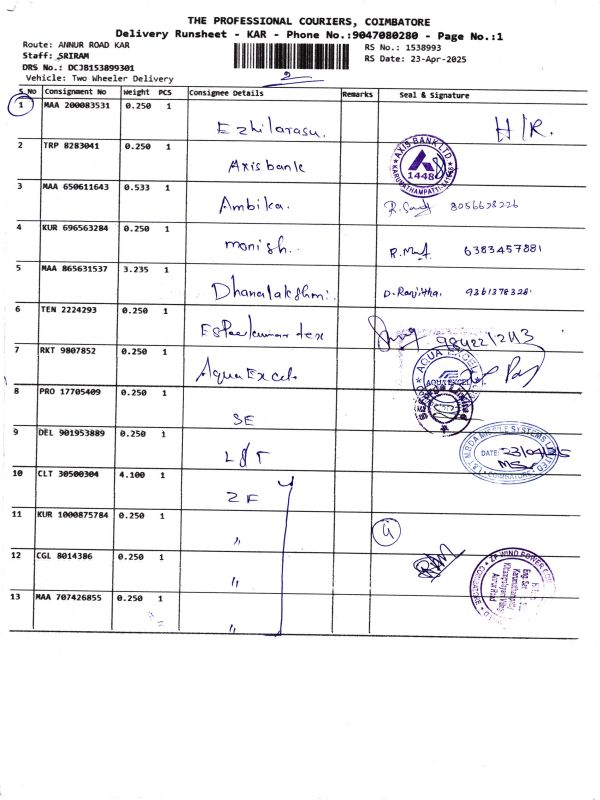 THE PROFESSIONAL COURIERS, COIMBATORE
Delivery Runsheet - KAR - Phone No.:9047080280 - Page No.:1
Route: ANNUR ROAD KAR
RS No.: 1538993
Staff: SRIRAM
RS Date: 23-Apr-2025
DRS No.: DCJB153899301
2
Vehicle: Two Wheeler Delivery
S No Consignment No Weight PCS Consignee Details Remarks Seal & Signature
1 MAA 200083531 0.250 1
Ezhilarasu. H/R.
2 TRP 8283041 0.250 1
Axis bank AXIS BANK LTD 1448
3 MAA 650611643 0.533 1
Ambika. 8056628226
4 KUR 696563284 0.250 1
monish. 6383457881
5 MAA 865631537 3.235 1
Dhanalakshmi. D. Ranjitha. 9361378328
6 TEN 2224293 0.250 1
7 RKT 9807852 0.250 1
Aqua Excel AQUA EXCEL
8 PRO 17705409 0.250 1
SE
9 DEL 901953889 0.250 1
L&T DATE: 23/04/25 COIMBATORE
10 CLT 30500304 4.100 1
ZF
11 KUR 1000875784 0.250 1
"
12 CGL 8014386 0.250 1
" ZF WIND POWER
13 MAA 707426855 0.250 1
"